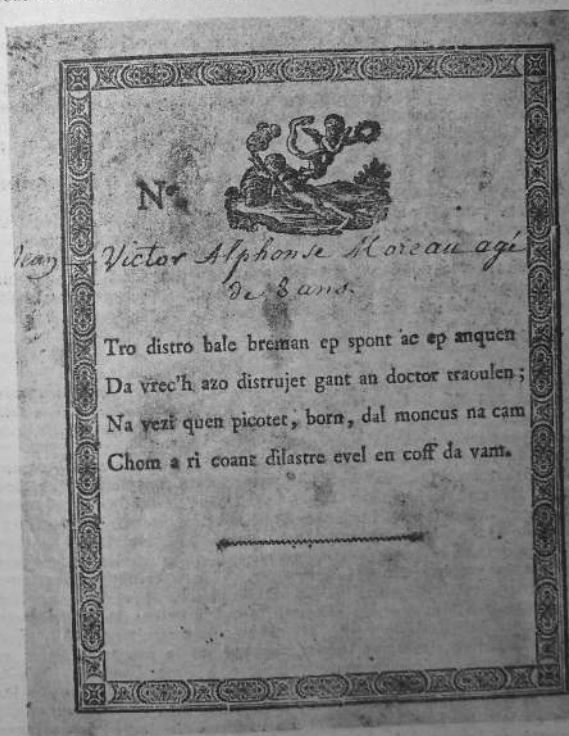 N°
Jean Victor Alphonse Moreau agé
de 8 ans.
Tro distro bale breman ep spont ac ep anquen
Da vrec'h azo distrujet gant an doctor traoulen ;
Na vezi quen picotet, born, dal moncus na cam
Chom a ri coant dilastre evel en coff da vam.